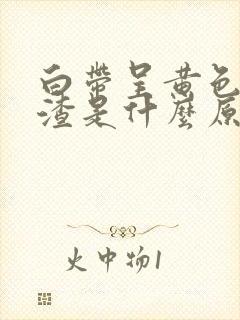 白带呈黄色
渣是什麼原
火中物1